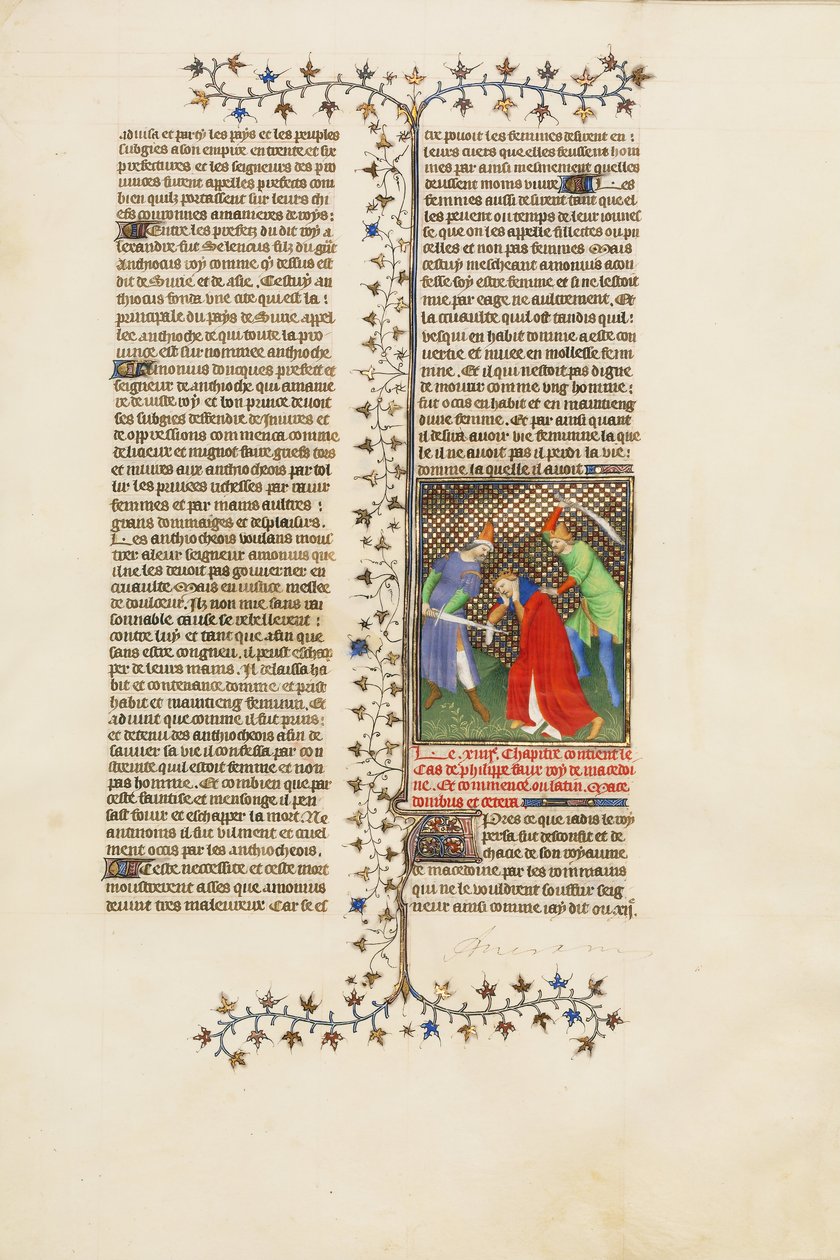 aduisa et party les pays et les peuples
subgies a son empire en trente et six
prefectures et les seigneurs des pro
uinces furent appelles prefects com
bien quilz portassent sur leurs chi
efs couronnes a manieres de roys :
Entre les prefetz du dit roy a
lexandre fut Selencus filz du grant
Anthiocus roy comme cy dessus est
dit de Surie et de asie. Cestuy an
thiocus fonda vne cite qui est la :
principale du pays de Surie appel
lee anthioche de qui toute la pro
uince est surnommee anthioche
Amonius doncques prefect et
seigneur de anthioche qui a manie
re de iuste roy et bon prince deuoit
ses subgies deffendre de iniures et
de oppressions commenca comme
delicieux et mignot faire griefz tors
et iniures aux anthiocheois par tol
lir les priuees richesses par rauir
femmes et par mains aultres :
grans dommaiges et desplaisirs.
Les anthiocheois voulans mous
trer a leur seigneur amonius que
il ne les deuoit pas gouuerner en
cruaulte Mais en iustice meslee
de doulceur. Ilz non mie sans rai
sonnable cause se rebellerent :
contre luy et tant que afin que
sans estre congneu. il peust eschap
per de leurs mains. Il delaissa ha
bit et contenance domme et prist
habit et maintieng feminin. Et
aduint que comme il fut prins :
et detenu des anthiocheois afin de
sauuer sa vie il confessa par con
trainte quil estoit femme et non
pas homme. Et combien que par
ceste faintise et mensonge il pen
sast fouir et eschapper la mort Ne
antmoins il fut vilment et cruel
ment occis par les anthiocheois.
Ceste necessite et ceste mort
moustrerent asses que amonius
deuint tres maleureux Car se es
tre pouoit les femmes desirent en :
leurs cuers que elles feussent hom
mes par ainsi mesmement quelles
deussent moins viure Les
femmes aussi desirent tant que el
les peuent ou temps de leur iounes
se que on les appelle fillettes ou pu
celles et non pas femmes Mais
cestuy mescheant amonius a con
fesse soy estre femme et si ne lestoit
mie par eage ne aultrement. Et
la cruaulte quil ost tandis quil :
vesqui en habit domme a este con
uertie et muee en mollesse femi
nine. Et il qui nestoit pas digne
de mourir comme vng homme :
fut occis en habit et en maintieng
dune femme. Et par ainsi quant
il desira auoir vie feminine la que
le il ne auoit pas il perdi la vie :
domme la quelle il auoit
Le .xiiie. Chapitre contient le
Cas de philippe faux roy de macedoi
ne. Et commence ou latin. Mace
donibus et cetera
Apres ce que iadis le roy
persa fut desconfit et de
chacie de son royaume
de macedoine par les rommains
qui ne le vouldrent souffrir seig
neur ainsi comme iay dit ou .xije.